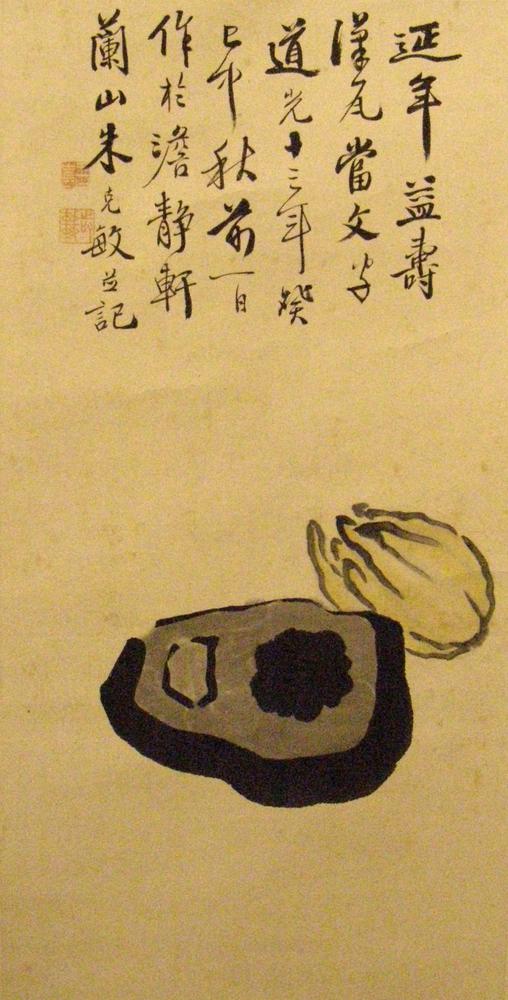 延年益壽
漢瓦當文字
道光十三年癸
巳中秋前一日
作於澹靜軒
蘭山朱克敏並記